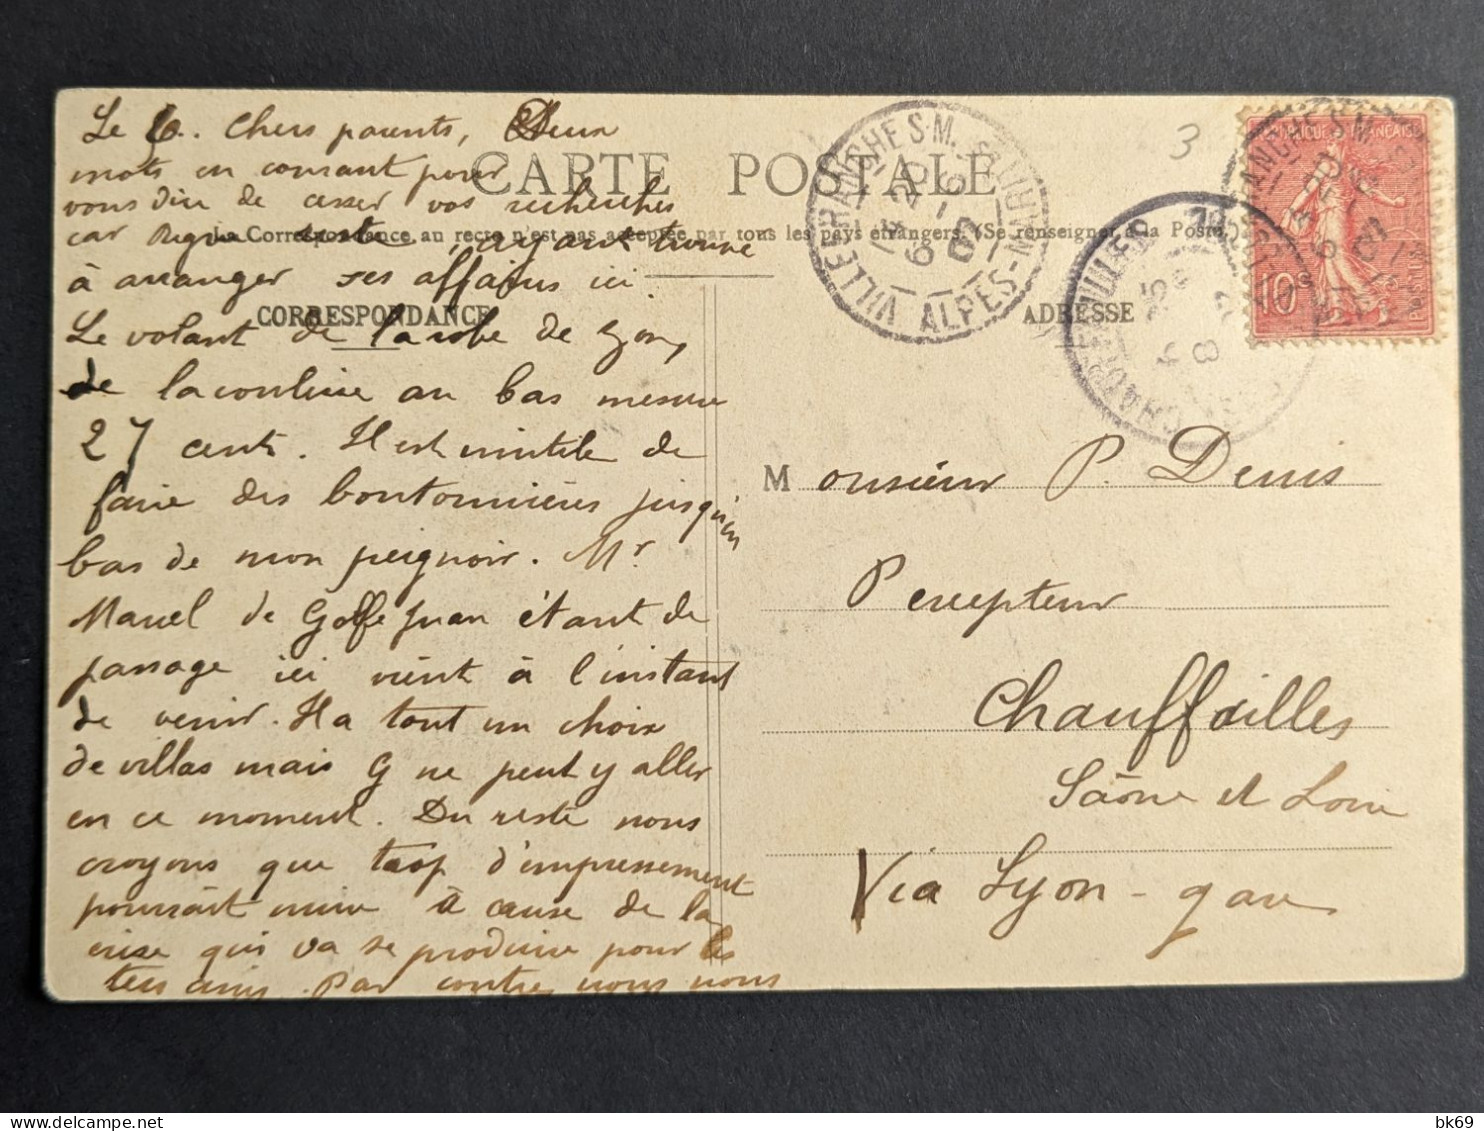 Le 6. Chers parents, Deux
mots en courant pour
vous dire de cesser vos recherches
car reste, ayant trouvé
à arranger ses affaires ici.
Le volant de la robe de
de la couleur au bas mesure
27 cents. Il est inutile de
faire des boutonnières jusqu'en
bas de mon peignoir. Mr
de Golfe Juan étant de
passage ici vient à l'instant
de venir. Il a tout un choix
de villas mais G ne peut y aller
en ce moment. Du reste nous
croyons que trop d'impressement
pourrait nuire à cause de la
crise qui va se produire pour les
terrains. Par contre nous nous
CARTE POSTALE
La Correspondance au recto n'est pas acceptée par tous les pays étrangers. (Se renseigner à la Poste.)
CORRESPONDANCE
ADRESSE
VILLEFRANCHE S-M.
ALPES-MARIT
3
10c
Monsieur P. Denis
Percepteur
Chauffailles
Saône et Loire
Via Lyon-gare
bk69